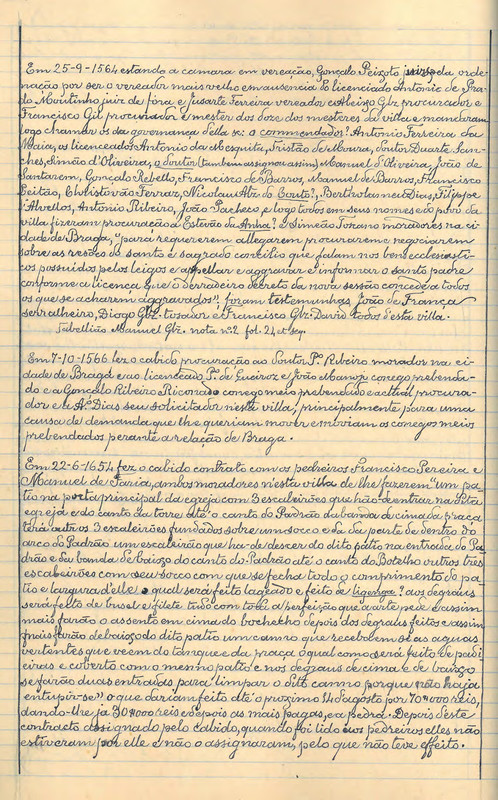 Em 25-9-1564 estando a camara em vereação, Gonçalo Peixoto juiz da orde-
nação por ser o vereador mais velho em ausencia do licenciado Antonio de Pra-
do Moutinho juiz de fora e Jusarte Ferreira vereador e Aleixo Glz. procurador e
Francisco Gil procurador e mester dos doze dos mesteres da villa e mandaram
logo chamar os da governança della se: o commendador? Antonio Ferreira da
Maia, os licenceados Antonio da Mesquita, Tristão de Moura, doutor Duarte San-
ches, Simão d'Oliveira, o doutor (tambem assignou assim) Manuel d'Oliveira, João de
Santarem, Gonçalo Rebello, Francisco de Barros, Manuel de Barros, Francisco
Leitão, Christovão Ferraz, Nicolau Alz. do Couto?, Bertholameu Dias, Filippe
d'Alvellos, Antonio Ribeiro, João Pacheco, e logo todos em seus nomes e do povo da
villa fizeram procuração a Estevão da Anha? e Simeão Torano moradores na ci-
dade de Braga, "para requererem allegarem procurarem e negociarem
sobre as resões do santo e sagrado concilio que falam nos bens ecclesiasti-
cos possuidos pelos leigos e appellar e aggravar e informar o santo padre
conforme a licença que o derradeiro decreto da nova sessão concede a todos
os que se acharem aggravados"; foram testemunhas João de França
serralheiro, Diogo Glz. tosador e Francisco Glz. David todos d'esta villa.
Tabellião Manuel Glz. nota nº 2 fol. 24 et seq.
Em 7-10-1566 fez o cabido procuração ao doutor P. Ribeiro morador na ci-
dade de Braga e ao licenceado P. de Queiroz e João conego prebenda-
do e a Gonçalo Ribeiro conego meio prebendado e actual procura-
dor e a Dias seu solicitador n'esta villa, principalmente para uma
causa de demanda que lhe queriam mover e moviam os conegos meio
prebendados perante a relação de Braga.
Em 22-6-1654 fez o cabido contrato com os pedreiros Francisco Pereira e
Manuel de Faria, ambos moradores n'esta villa de lhe fazerem "um pa-
tio na porta principal da egreja com 3 escaleirões que hão-de entrar na dita
egreja e do canto da torre até o canto do Padrão da banda de cima da praça
terá outros 3 escaleirões fundados sobre um socco e da da parte de dentro do
arco do Padrão um escaleirão que ha-de descer do dito patio na entrada do Pa-
drão e da banda de baixo do canto do Padrão até o canto do Botelho outros tres
escaleirões com seu socco com que se fecha todo o comprimento do pa-
tio e largura d'elle o qual será feito lageado e feito de ligença? aos degraus
será feito de busel e filete tudo com toda a perfeição que a arte pede e assim
mais farão o assento em cima do bochelho depois dos degraus feitos e assim
mais farão debaixo do dito patio um canno que recebolem se as aguas
vertentes que veem do tanque e da praça o qual como será feito de padi-
eiras e coberto com o menino patio e nos degraus de cima e de baixo
se farão duas entradas para limpar o dito canno porque não haja
entupir-se" o que dariam feito até o proximo 14 d'agosto por 70$000 reis,
dando-lhe ja 30$000 reis e depois as mais pagas, e a pedra. Depois d'este
contracto assignado pelo cabido, quando foi lido aos pedreiros elles não
estiveram por elle e não o assignaram, pelo que não teve effeito.